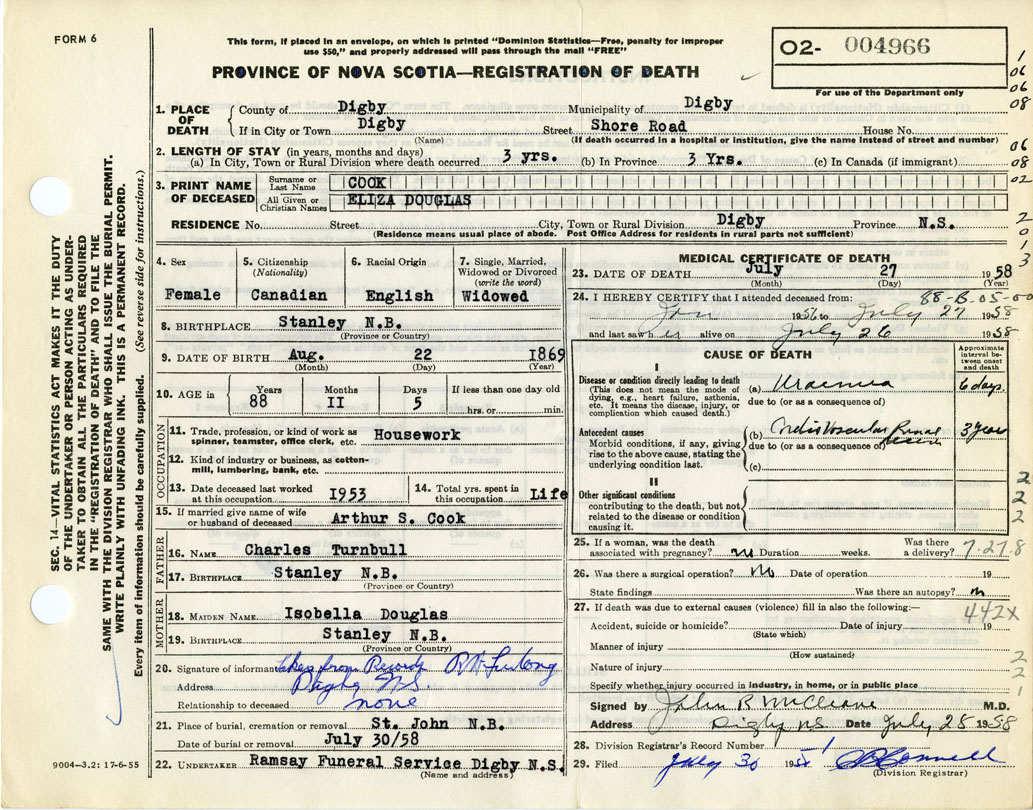 FORM 6
This form, if placed in an envelope, on which is printed "Dominion Statistics—Free, penalty for improper
use $50," and properly addressed will pass through the mail "FREE"
O2- 004966
For use of the Department only
PROVINCE OF NOVA SCOTIA—REGISTRATION OF DEATH
1. PLACE OF DEATH
County of Digby Municipality of Digby
If in City or Town Digby Street Shore Road House No.
(Name) (If death occurred in a hospital or institution, give the name instead of street and number)
2. LENGTH OF STAY (in years, months and days)
(a) In City, Town or Rural Division where death occurred 3 yrs. (b) In Province 3 Yrs. (c) In Canada (if immigrant)
3. PRINT NAME OF DECEASED
Surname or Last Name COOK
All Given or Christian Names ELIZA DOUGLAS
RESIDENCE No. Street City, Town or Rural Division Digby Province N.S.
(Residence means usual place of abode. Post Office Address for residents in rural parts not sufficient)
4. Sex Female
5. Citizenship (Nationality) Canadian
6. Racial Origin English
7. Single, Married, Widowed or Divorced (write the word) Widowed
8. BIRTHPLACE Stanley N.B.
(Province or Country)
9. DATE OF BIRTH Aug. 22 1869
(Month) (Day) (Year)
10. AGE in Years 88 Months II Days 5 If less than one day old hrs. or min.
OCCUPATION
11. Trade, profession, or kind of work as spinner, teamster, office clerk, etc. Housework
12. Kind of industry or business, as cotton-mill, lumbering, bank, etc.
13. Date deceased last worked at this occupation I953
14. Total yrs. spent in this occupation Life
15. If married give name of wife or husband of deceased Arthur S. Cook
FATHER
16. NAME Charles Turnbull
17. BIRTHPLACE Stanley N.B.
(Province or Country)
MOTHER
18. MAIDEN NAME Isobella Douglas
19. BIRTHPLACE Stanley N.B.
(Province or Country)
20. Signature of informant taken from Records
Address Digby N.S.
Relationship to deceased none
21. Place of burial, cremation or removal St. John N.B.
Date of burial or removal July 30/58
22. UNDERTAKER Ramsay Funeral Service Digby N.S.
(Name and address)
MEDICAL CERTIFICATE OF DEATH
23. DATE OF DEATH July 27 1958
(Month) (Day) (Year)
88-B-05-00
24. I HEREBY CERTIFY that I attended deceased from:
Jan 1956 to July 27 1958
and last saw h er alive on July 26 1958
CAUSE OF DEATH
Approximate interval between onset and death
I
Disease or condition directly leading to death
(This does not mean the mode of dying, e.g., heart failure, asthenia, etc. It means the disease, injury, or complication which caused death.)
(a) Uraemia 6 days
due to (or as a consequence of)
Antecedent causes
Morbid conditions, if any, giving rise to the above cause, stating the underlying condition last.
(b) 3 years
due to (or as a consequence of)
(c)
II
Other significant conditions
contributing to the death, but not related to the disease or condition causing it.
25. If a woman, was the death associated with pregnancy? no Duration weeks. Was there a delivery? 7-27-8
26. Was there a surgical operation? no Date of operation 19
State findings Was there an autopsy? no
27. If death was due to external causes (violence) fill in also the following:—
442X
Accident, suicide or homicide? Date of injury 19
(State which)
Manner of injury
(How sustained)
Nature of injury
Specify whether injury occurred in industry, in home, or in public place
Signed by John B McCleave M.D.
Address Digby NS Date July 28 1958
28. Division Registrar's Record Number
29. Filed July 30 195
(Division Registrar)
SEC. 14—VITAL STATISTICS ACT MAKES IT THE DUTY
OF THE UNDERTAKER OR PERSON ACTING AS UNDER-
TAKER TO OBTAIN ALL THE PARTICULARS REQUIRED
IN THE "REGISTRATION OF DEATH" AND TO FILE THE
SAME WITH THE DIVISION REGISTRAR WHO SHALL ISSUE THE BURIAL PERMIT.
WRITE PLAINLY WITH UNFADING INK. THIS IS A PERMANENT RECORD.
Every item of information should be carefully supplied. (See reverse side for instructions.)
9004—3.2: 17-6-55
1
06
06
08
06
08
02
2
0
1
3
2
2
2
2
2
1